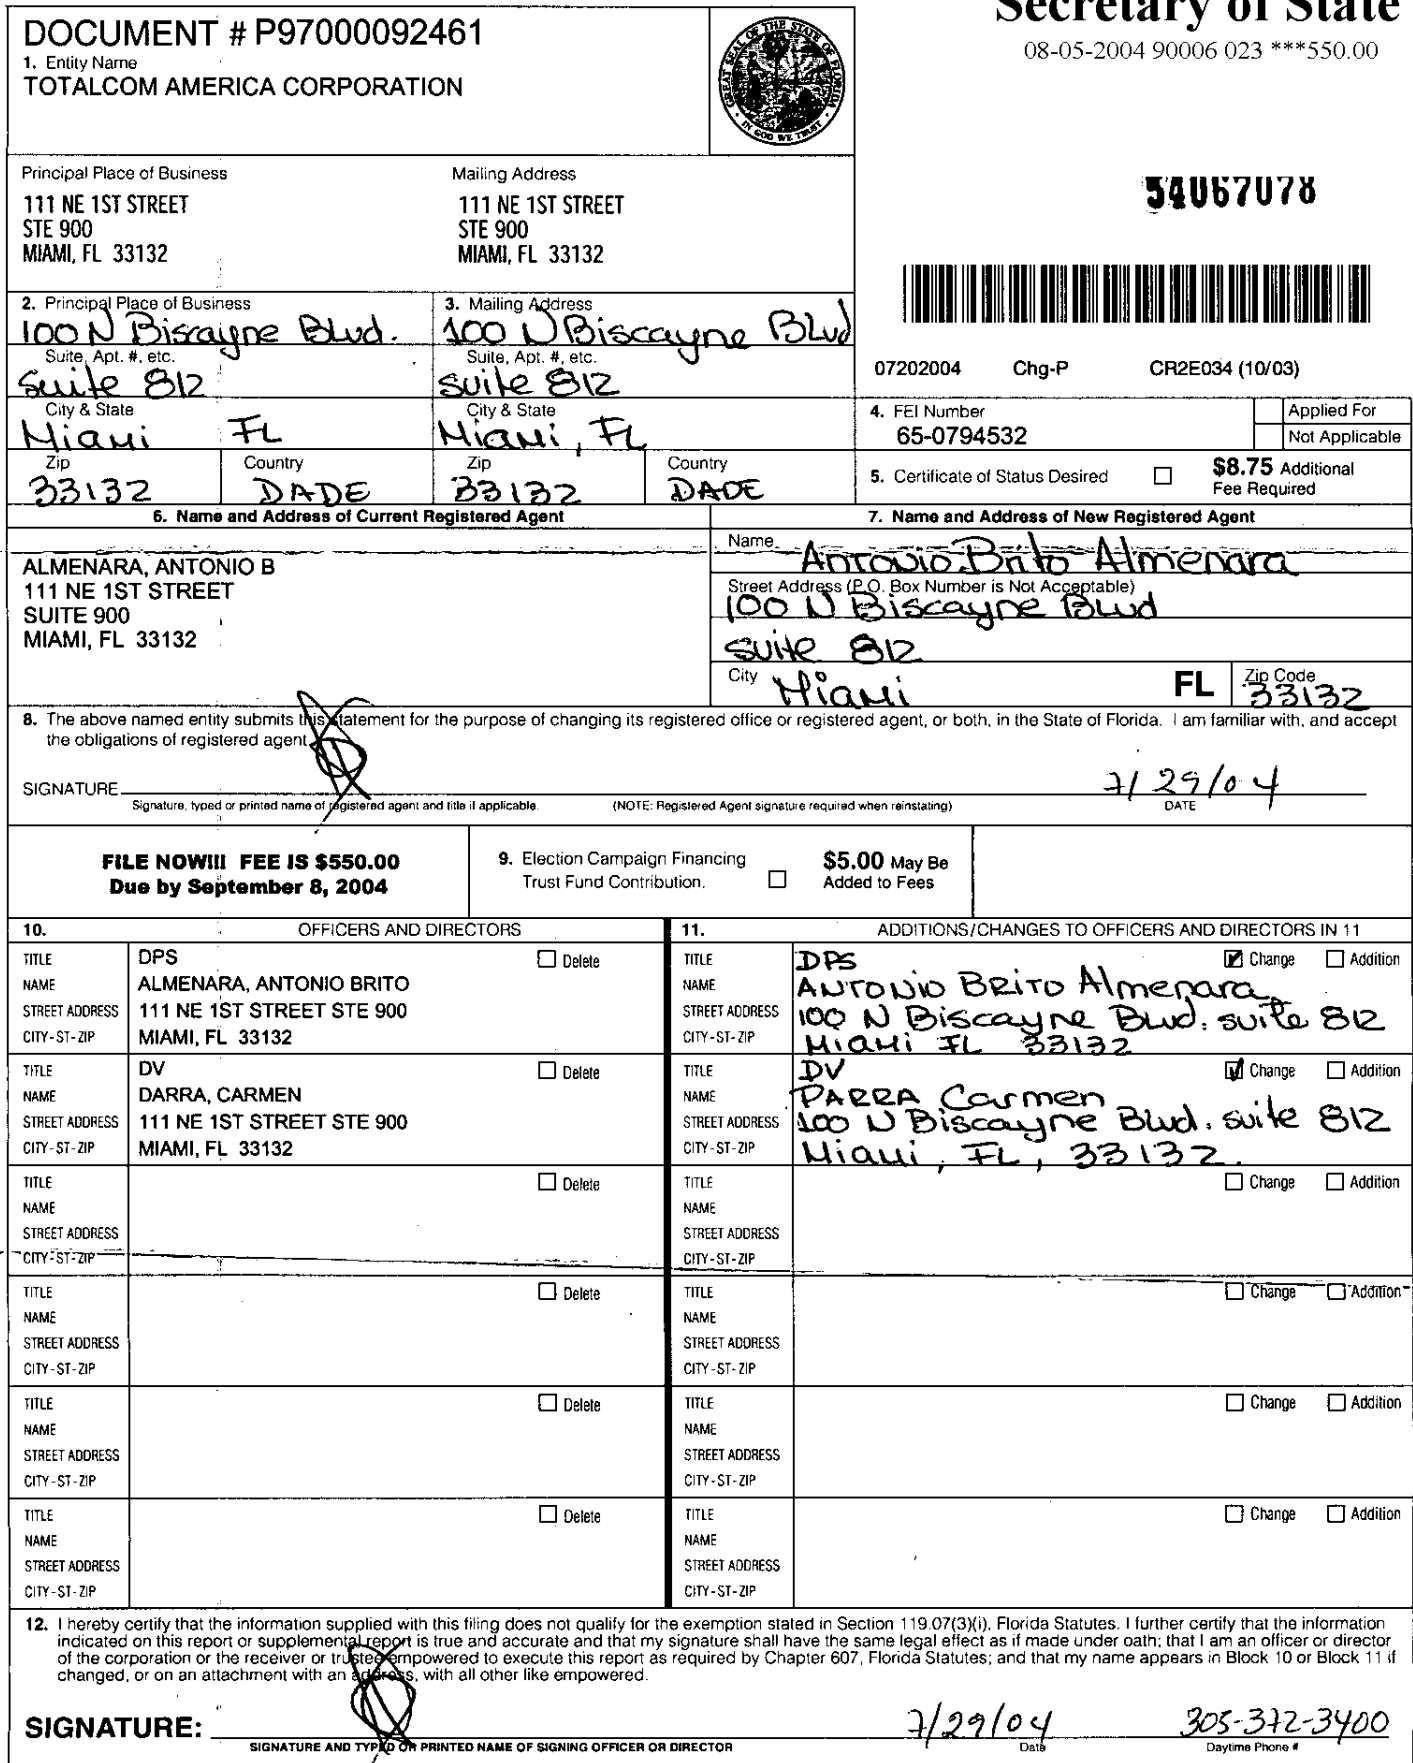 Secretary of State
08-05-2004 90006 023 ***550.00
DOCUMENT # P97000092461
1. Entity Name
TOTALCOM AMERICA CORPORATION
GREAT SEAL OF THE STATE OF FLORIDA
IN GOD WE TRUST
Principal Place of Business
111 NE 1ST STREET
STE 900
MIAMI, FL 33132
Mailing Address
111 NE 1ST STREET
STE 900
MIAMI, FL 33132
54067078
2. Principal Place of Business
100 N Biscayne Blvd.
Suite, Apt. #, etc.
Suite 812
City & State
Miami FL
Zip
33132
Country
DADE
3. Mailing Address
100 N Biscayne Blvd
Suite, Apt. #, etc.
suite 812
City & State
Miami, FL
Zip
33132
Country
DADE
07202004 Chg-P CR2E034 (10/03)
4. FEI Number
65-0794532
Applied For
Not Applicable
5. Certificate of Status Desired
$8.75 Additional
Fee Required
6. Name and Address of Current Registered Agent
ALMENARA, ANTONIO B
111 NE 1ST STREET
SUITE 900
MIAMI, FL 33132
7. Name and Address of New Registered Agent
Name
Antonio Brito Almenara
Street Address (P.O. Box Number is Not Acceptable)
100 N Biscayne Blvd
suite 812
City Miami FL Zip Code 33132
8. The above named entity submits this statement for the purpose of changing its registered office or registered agent, or both, in the State of Florida. I am familiar with, and accept
the obligations of registered agent
SIGNATURE
7/29/04
Signature, typed or printed name of registered agent and title if applicable. (NOTE: Registered Agent signature required when reinstating) DATE
FILE NOW!!! FEE IS $550.00
Due by September 8, 2004
9. Election Campaign Financing
Trust Fund Contribution.
$5.00 May Be
Added to Fees
10. OFFICERS AND DIRECTORS
TITLE DPS Delete
NAME ALMENARA, ANTONIO BRITO
STREET ADDRESS 111 NE 1ST STREET STE 900
CITY-ST-ZIP MIAMI, FL 33132
TITLE DV Delete
NAME DARRA, CARMEN
STREET ADDRESS 111 NE 1ST STREET STE 900
CITY-ST-ZIP MIAMI, FL 33132
TITLE Delete
NAME
STREET ADDRESS
CITY-ST-ZIP
TITLE Delete
NAME
STREET ADDRESS
CITY-ST-ZIP
TITLE Delete
NAME
STREET ADDRESS
CITY-ST-ZIP
TITLE Delete
NAME
STREET ADDRESS
CITY-ST-ZIP
11. ADDITIONS/CHANGES TO OFFICERS AND DIRECTORS IN 11
TITLE DPS Change Addition
NAME ANTONIO BRITO Almenara
STREET ADDRESS 100 N Biscayne Blvd. suite 812
CITY-ST-ZIP Miami FL 33132
TITLE DV Change Addition
NAME PARRA Carmen
STREET ADDRESS 100 N Biscayne Blvd. suite 812
CITY-ST-ZIP Miami, FL, 33132.
TITLE Change Addition
NAME
STREET ADDRESS
CITY-ST-ZIP
TITLE Change Addition
NAME
STREET ADDRESS
CITY-ST-ZIP
TITLE Change Addition
NAME
STREET ADDRESS
CITY-ST-ZIP
TITLE Change Addition
NAME
STREET ADDRESS
CITY-ST-ZIP
12. I hereby certify that the information supplied with this filing does not qualify for the exemption stated in Section 119.07(3)(i), Florida Statutes. I further certify that the information
indicated on this report or supplemental report is true and accurate and that my signature shall have the same legal effect as if made under oath; that I am an officer or director
of the corporation or the receiver or trustee empowered to execute this report as required by Chapter 607, Florida Statutes; and that my name appears in Block 10 or Block 11 if
changed, or on an attachment with an address, with all other like empowered.
SIGNATURE: 7/29/04 305-372-3400
SIGNATURE AND TYPED OR PRINTED NAME OF SIGNING OFFICER OR DIRECTOR Date Daytime Phone #